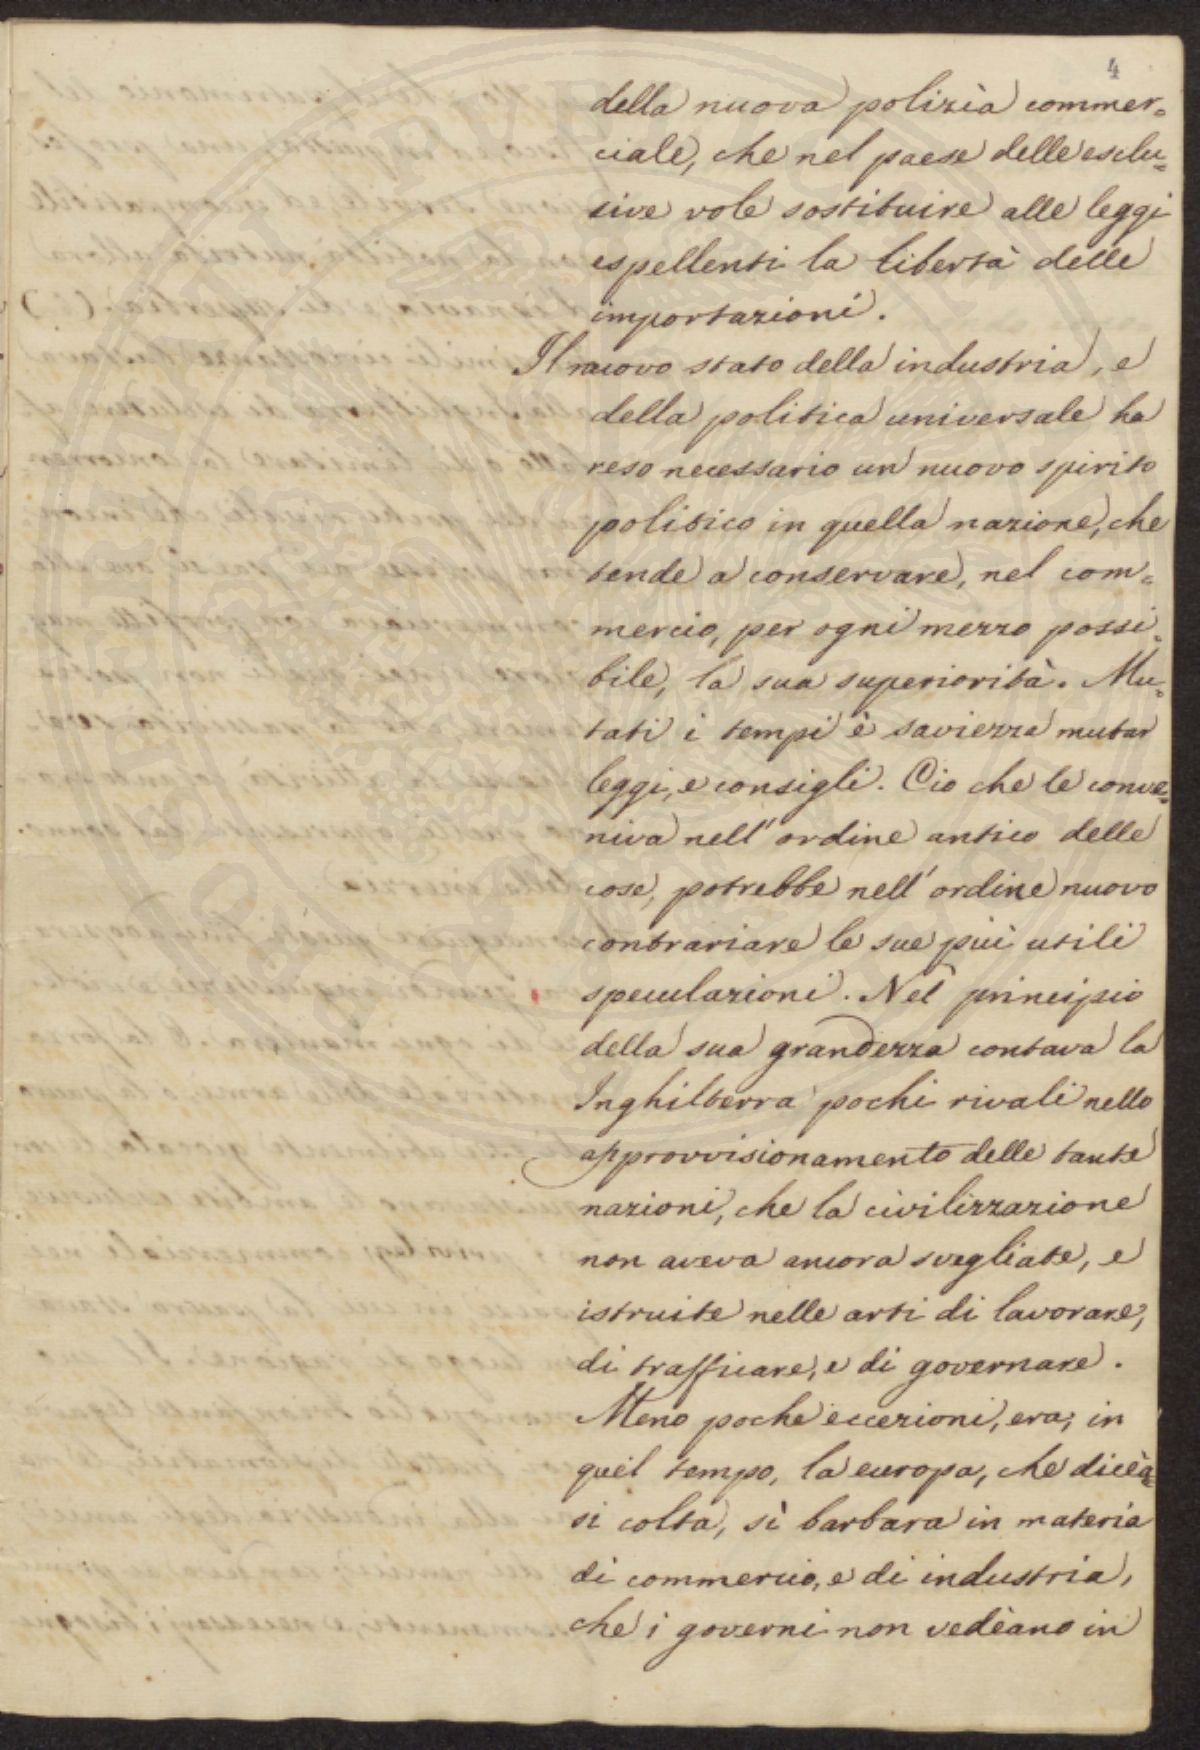 4
della nuova polizìa commer=
ciale, che nel paese delle esclu=
sive vole sostituire alle leggi
espellenti la libertà delle
importazioni.
Il nuovo stato della industria, e
della politica universale ha
reso necessario un nuovo spirito
politico in quella nazione, che
tende a conservare, nel com=
mercio, per ogni mezzo possi=
bile, la sua superiorità. Mu=
tati i tempi è saviezza mutar
leggi, e consigli. Cio che le conve=
niva nell'ordine antico delle
cose, potrebbe nell'ordine nuovo
contrariare le sue più utili
speculazioni. Nel principio
della sua grandezza contava la
Inghilterra pochi rivali nello
approvvisionamento delle tante
nazioni, che la civilizzazione
non aveva ancora svegliate, e
istruite nelle arti di lavorare,
di trafficare, e di governare.
Meno poche eccezioni, era, in
quel tempo, la europa, che dicèa=
si colta, sì barbara in materia
di commercio, e di industria,
che i governi non vedèano in